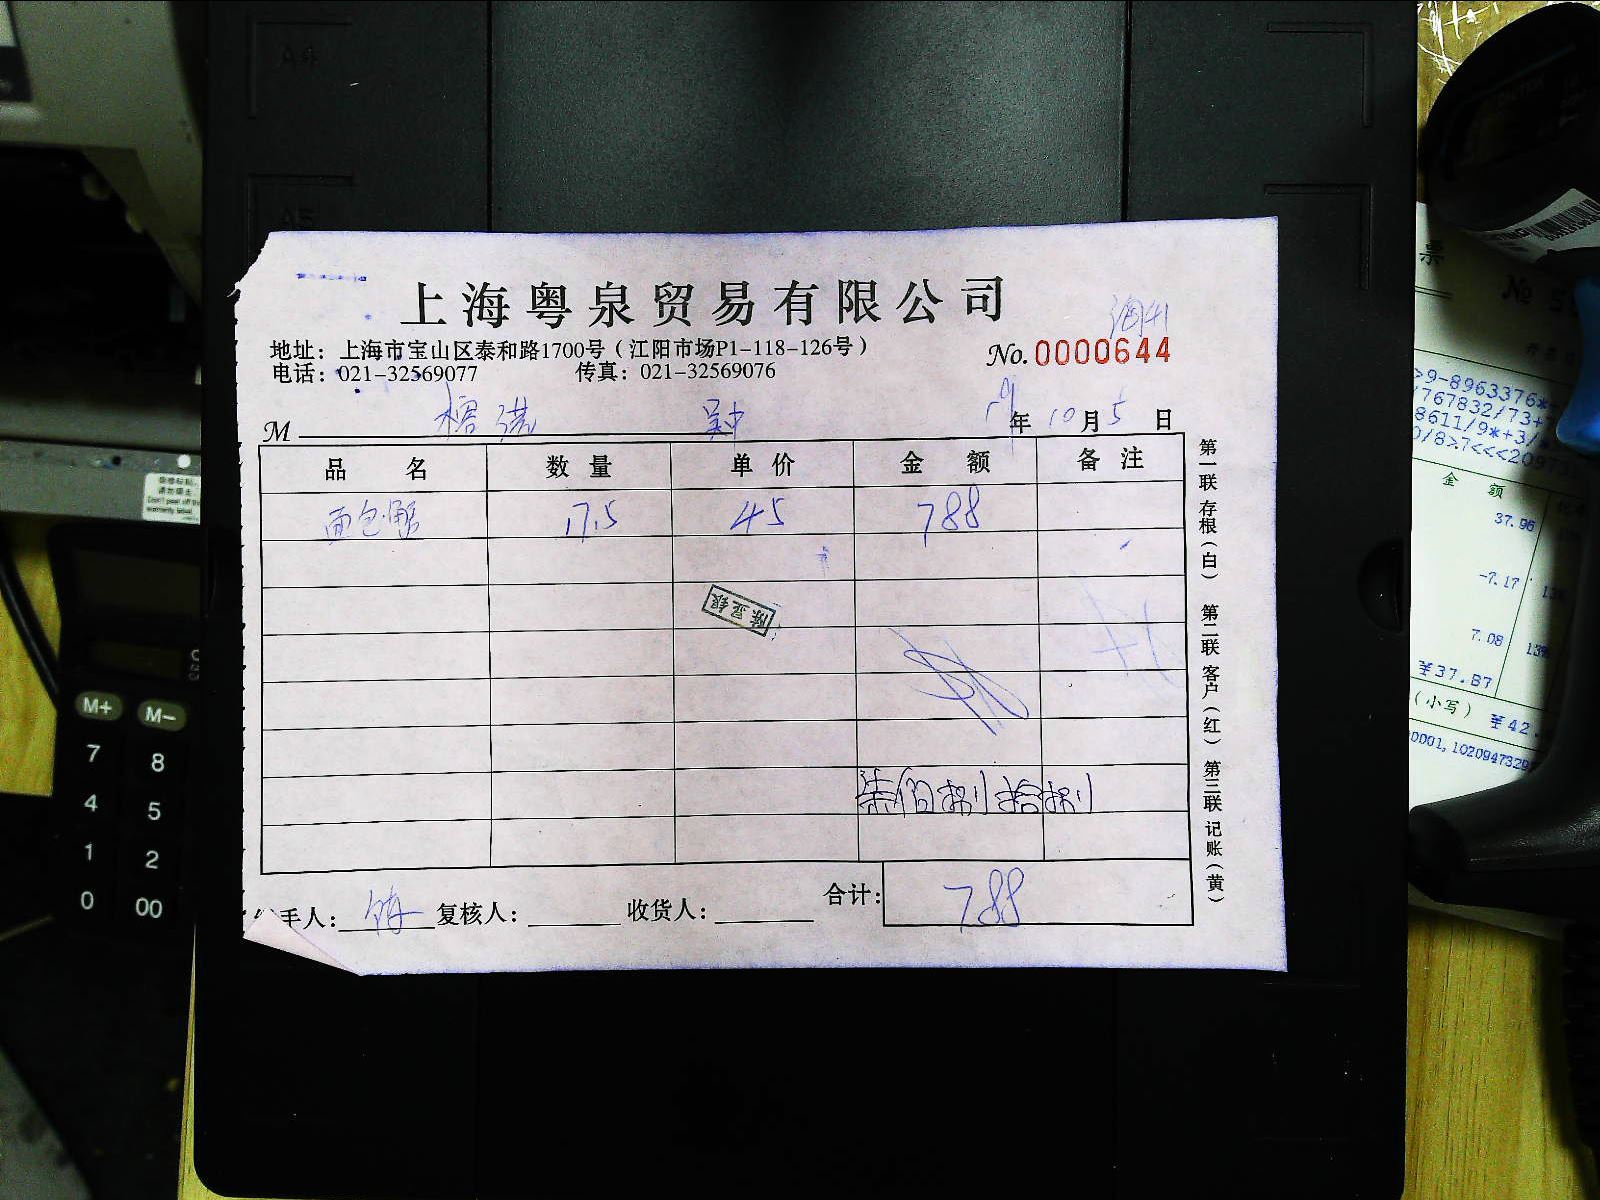 上海粤泉贸易有限公司
地址：上海市宝山区泰和路1700号（江阳市场P1-118-126号）
No.0000644
电话：021-32569077 传真：021-32569076
M 年 10 月 5 日
品名 数量 单价 金额 备注
面包 17.5 45 788
陈显银
柒佰捌拾捌
手人： 复核人： 收货人： 合计：788
第一联 存根（白） 第二联 客户（红） 第三联 记账（黄）
A4
A5
M+ M-
7 8
4 5
1 2
0 00
票
№ 5
>9-8963376*
/767832/73+
8611/9*+3/
0/8>7<<<2097
金 额
37.96
-7.17
7.08
￥37.87
（小写）￥42.
0001,1020947329